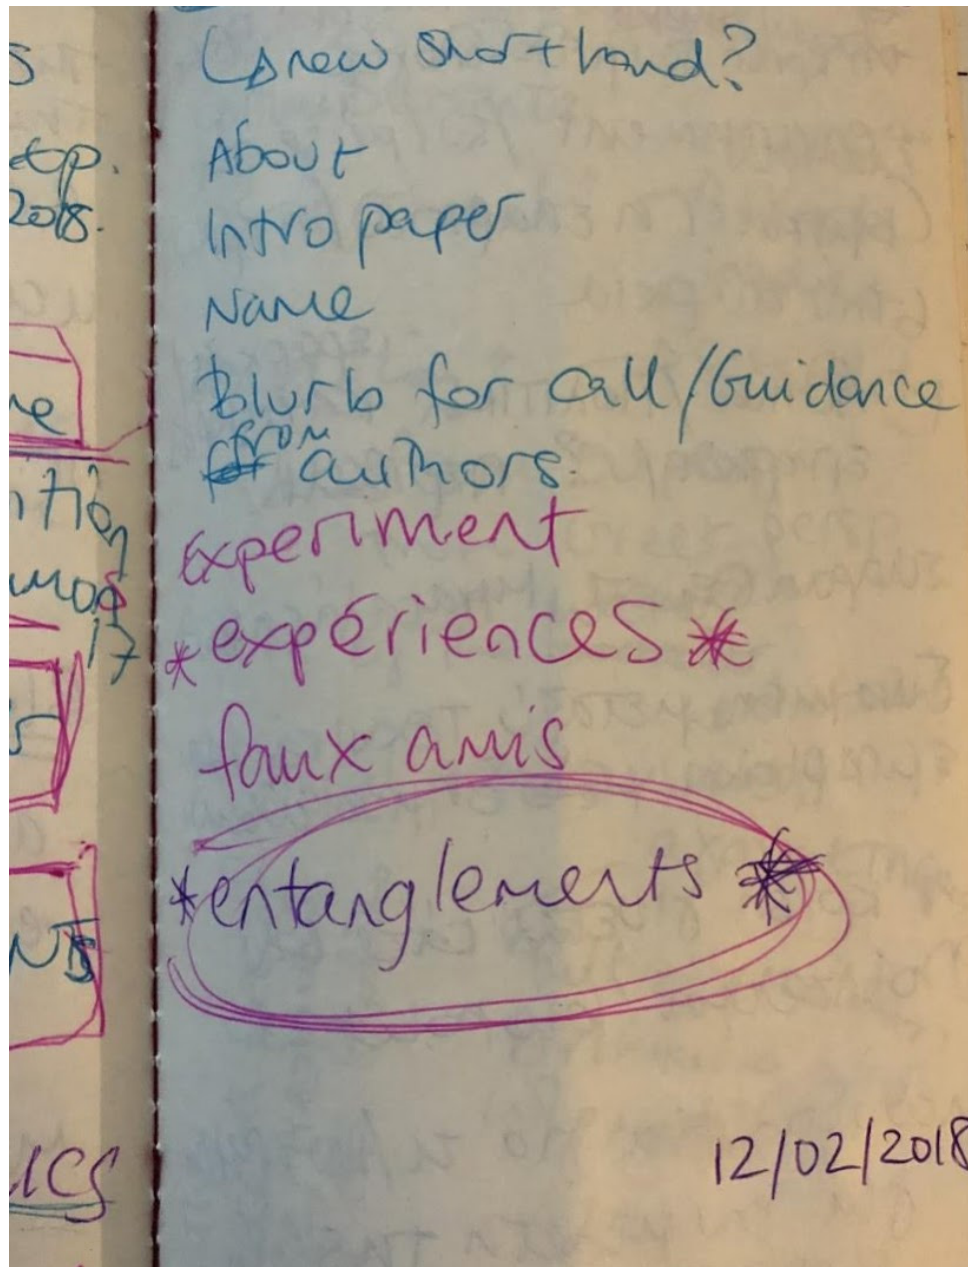 ↳ new shorthand?
About
Intro paper
Name
Blurb for call/Guidance
from authors.
experiment
*expériences*
faux amis
*entanglements*
12/02/2018
2018.
17